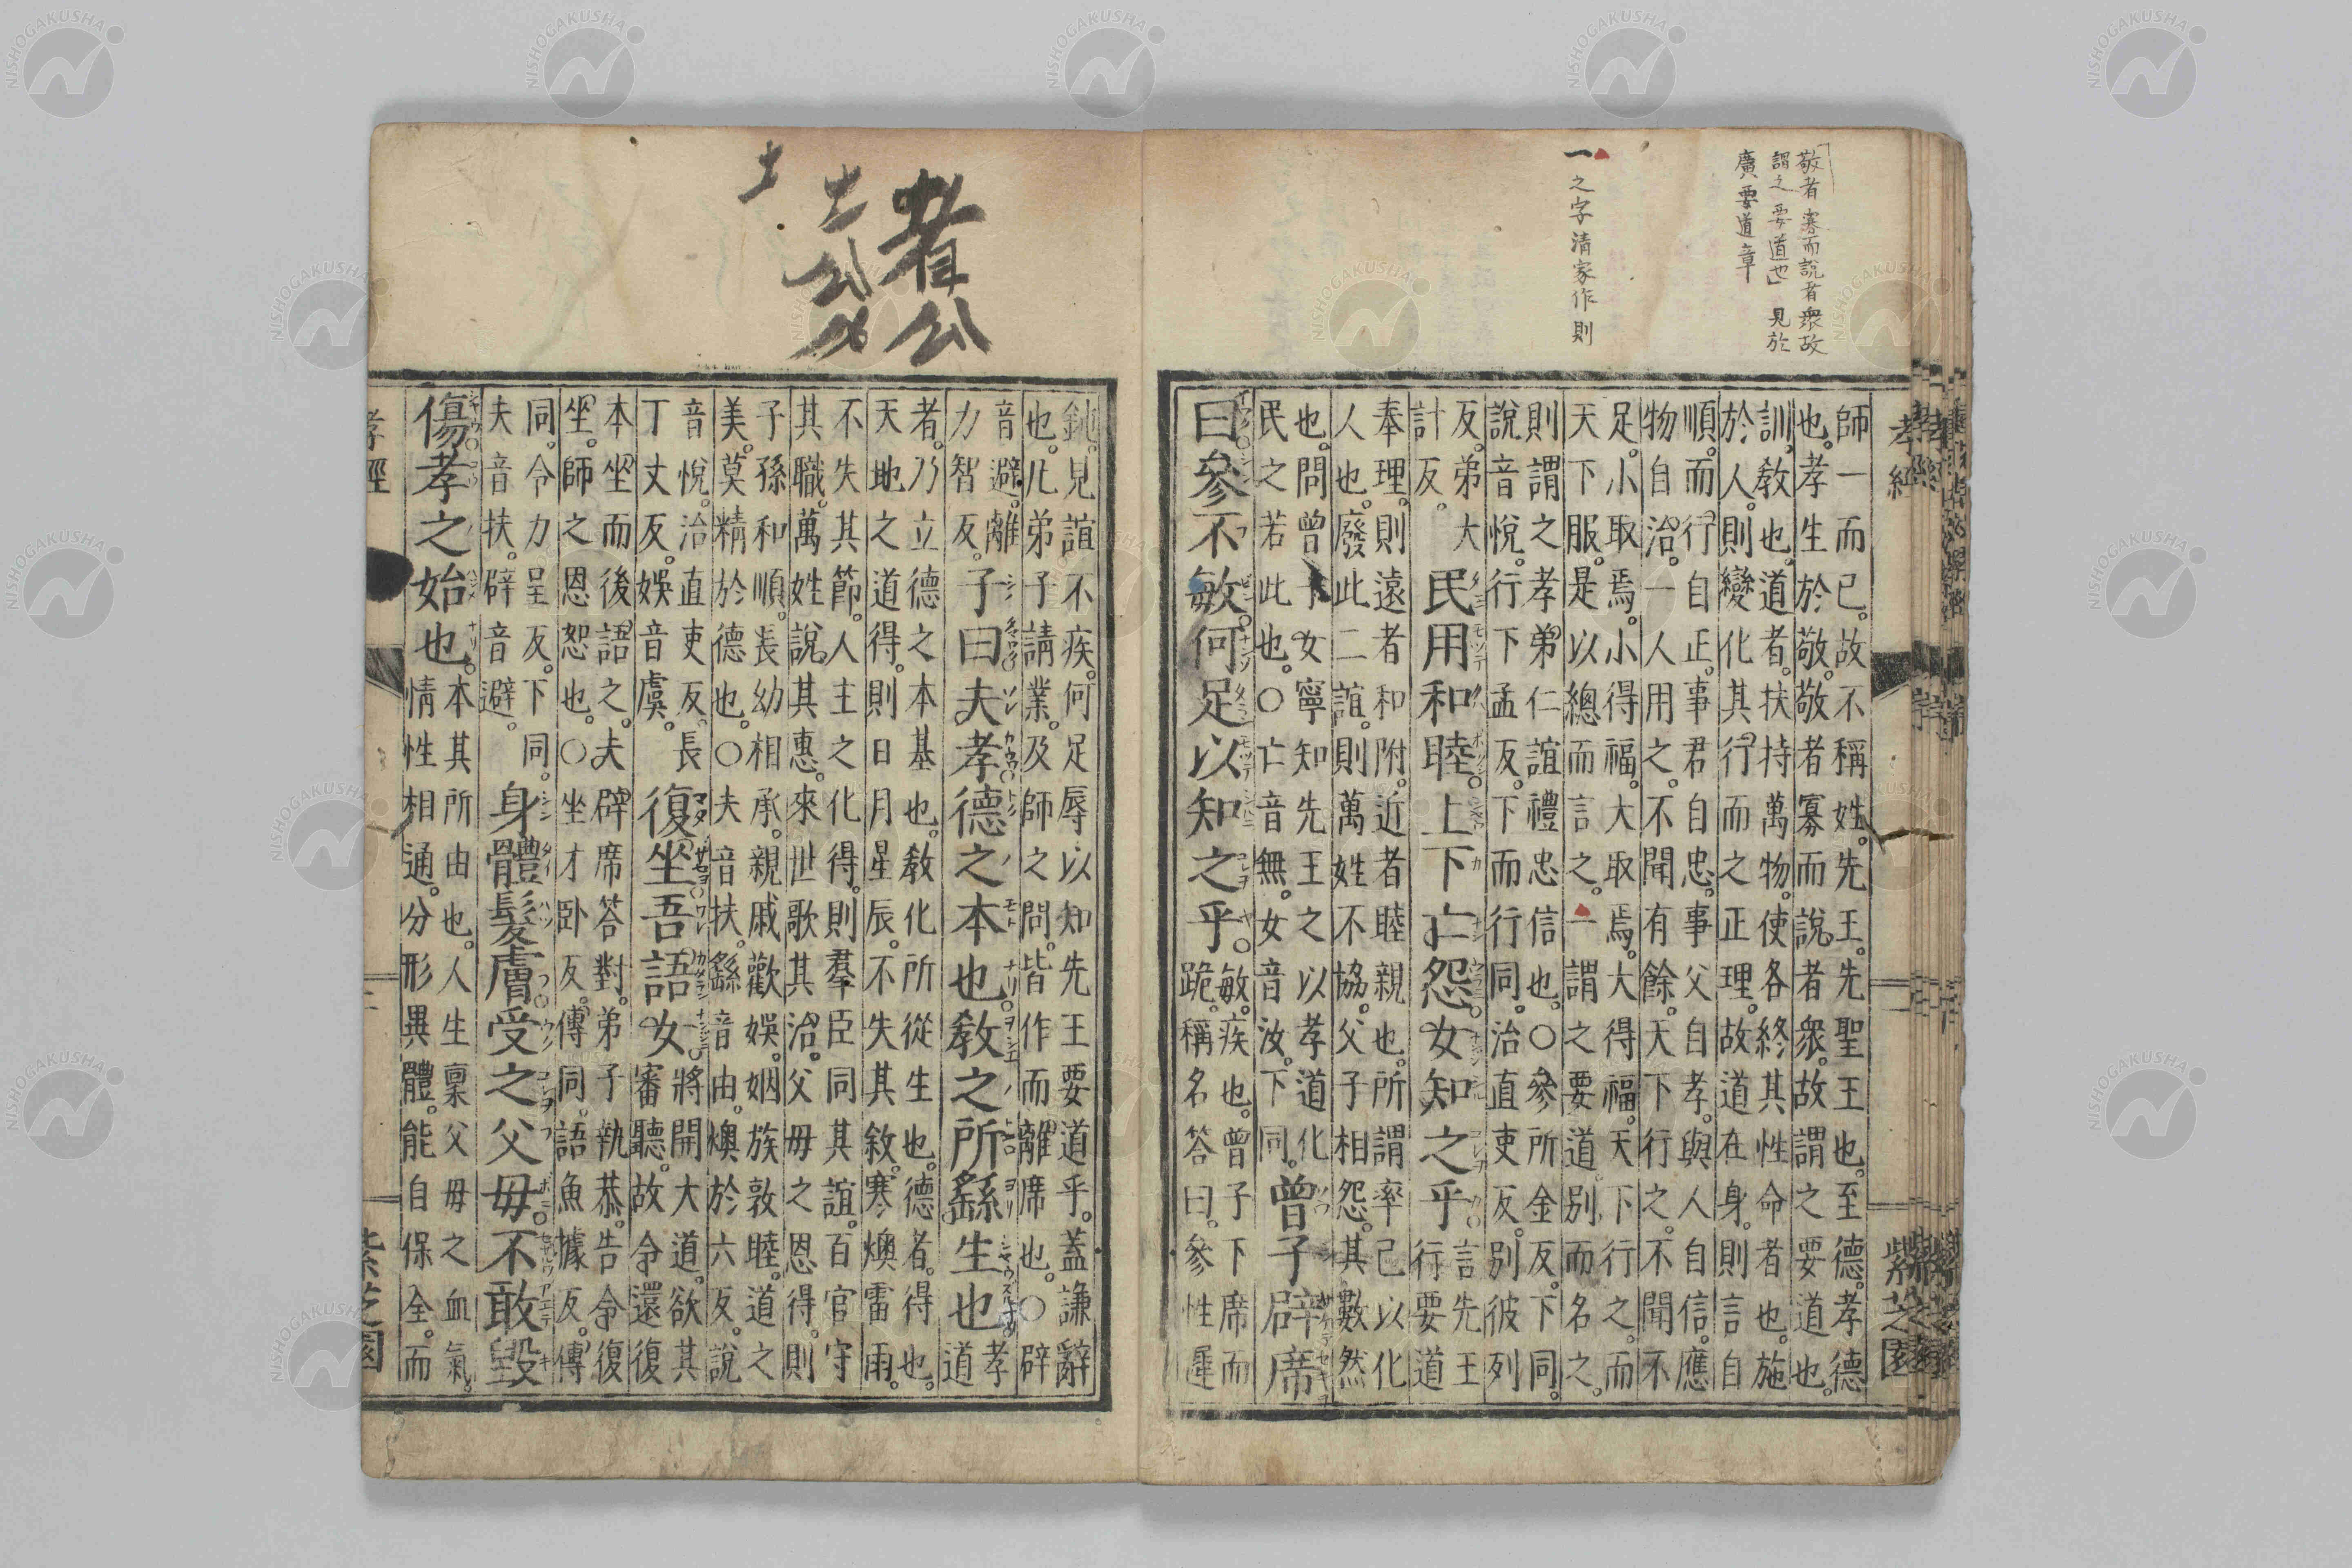 敬者寡而説者衆故
謂之要道也」見於
廣要道章
一之字清家作則
孝經
紫芝園
師一而已。故不稱姓。先王。先聖王也。至德。孝德
也。孝生於敬。敬者寡而說者衆。故謂之要道也。
訓。教也。道者。扶持萬物。使各終其性命者也。施
於人。則變化其行而之正理。故道在身。則言自
順。而行自正。事君自忠。事父自孝。與人自信。應
物自治。一人用之。不聞有餘。天下行之。不聞不
足。小取焉。小得福。大取焉。大得福。天下行之。而
天下服。是以總而言之。一謂之要道。別而名之。
則謂之孝弟仁誼禮忠信也。〇參所金反。下同。
說音悅。行下孟反。下而行行同。治直吏反。別彼列
反。弟大
計反。
民用和睦。上下亡怨。女知之乎
言先王
行要道
奉理。則遠者和附。近者睦親也。所謂率己以化
人也。廢此二誼。則萬姓不協。父子相怨。其數然
也。問曾子女寧知先王之以孝道化
民之若此也。〇亡音無。女音汝。下同。
曾子辟席
曰參不敏。何足以知之乎。
敏。疾也。曾子下席而
跪。稱名答曰。參性遲
者公
鈍。見誼不疾。何足辱以知先王要道乎。蓋謙辭
也。凡弟子請業。及師之問。皆作而離席也。〇辟
音避。離
力智反。
子曰夫孝德之本也。教之所繇生也
孝
道
者。乃立德之本基也。教化所從生也。德者。得也。
天地之道得。則日月星辰。不失其敘。寒燠雷雨。
不失其節。人主之化得。則羣臣同其誼。百官守
其職。萬姓說其惠。來世歌其治。父母之恩得。則
子孫和順。長幼相承。親戚歡娛。姻族敦睦。道之
美。莫精於德也。〇夫音扶。繇音由。燠於六反。說
音悅。治直吏反。長
丁丈反。娛音虞。
復坐吾語女
將開大道。欲其
審聽。故令還復
本坐。而後語之。夫辟席答對。弟子執恭。告令復
坐。師之恩恕也。〇坐才卧反。傳同。語魚據反。傳
同。令力呈反。下同。
夫音扶。辟音避。
身體髮膚受之父母。不敢毀
傷孝之始也。
本其所由也。人生稟父母之血氣。
情性相通。分形異體。能自保全。而
孝經
紫芝園